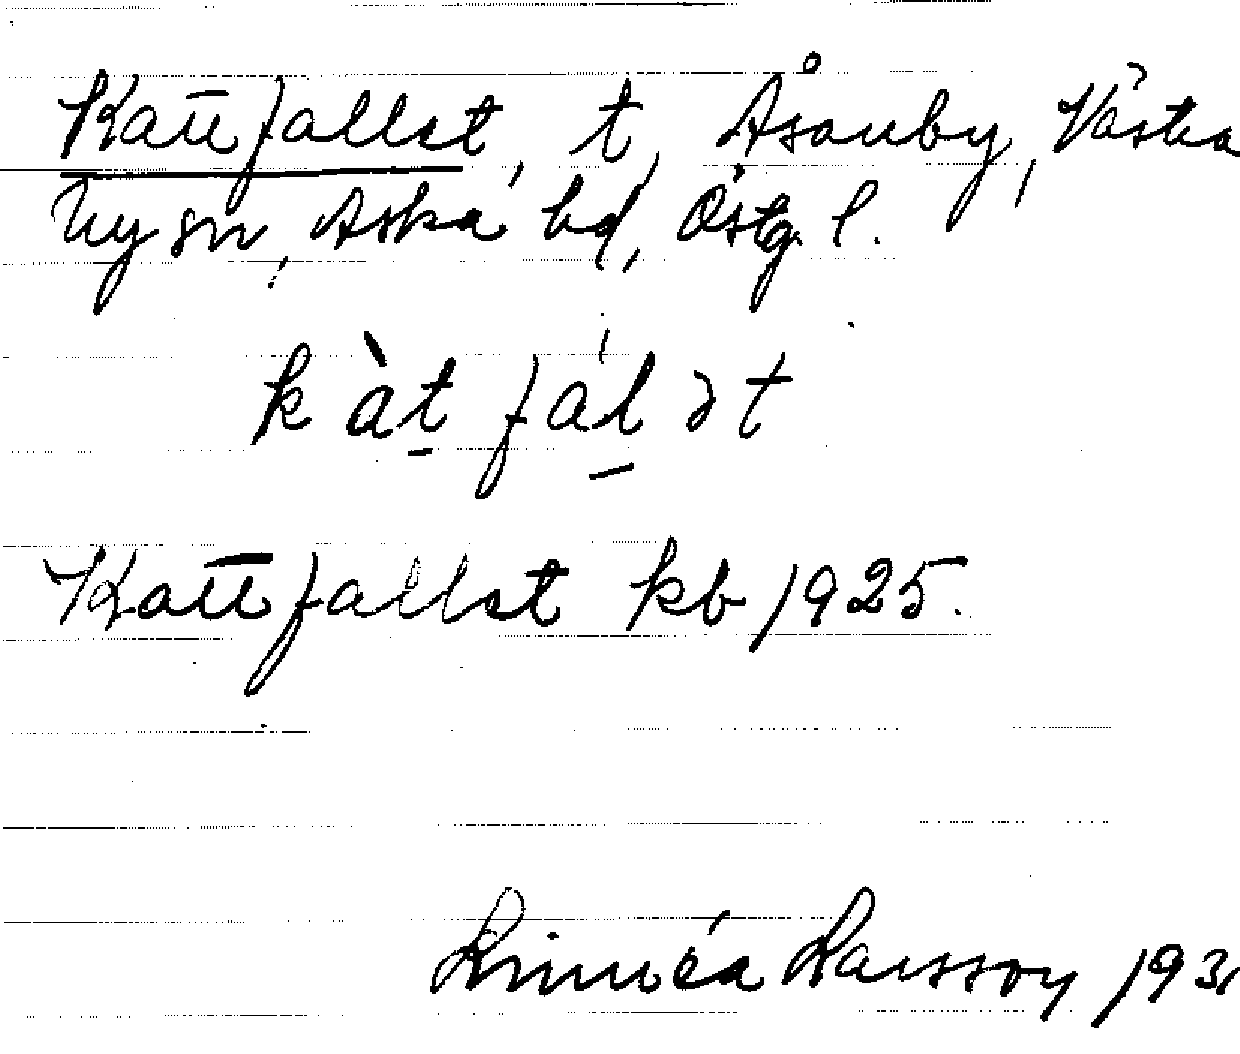 Kattfallet, t, Åsarby, Västra
Ny sn, Aska hd, Östg. l.
kàt fál ət
Kattfallet kb 1925.
Linnéa Larsson 193